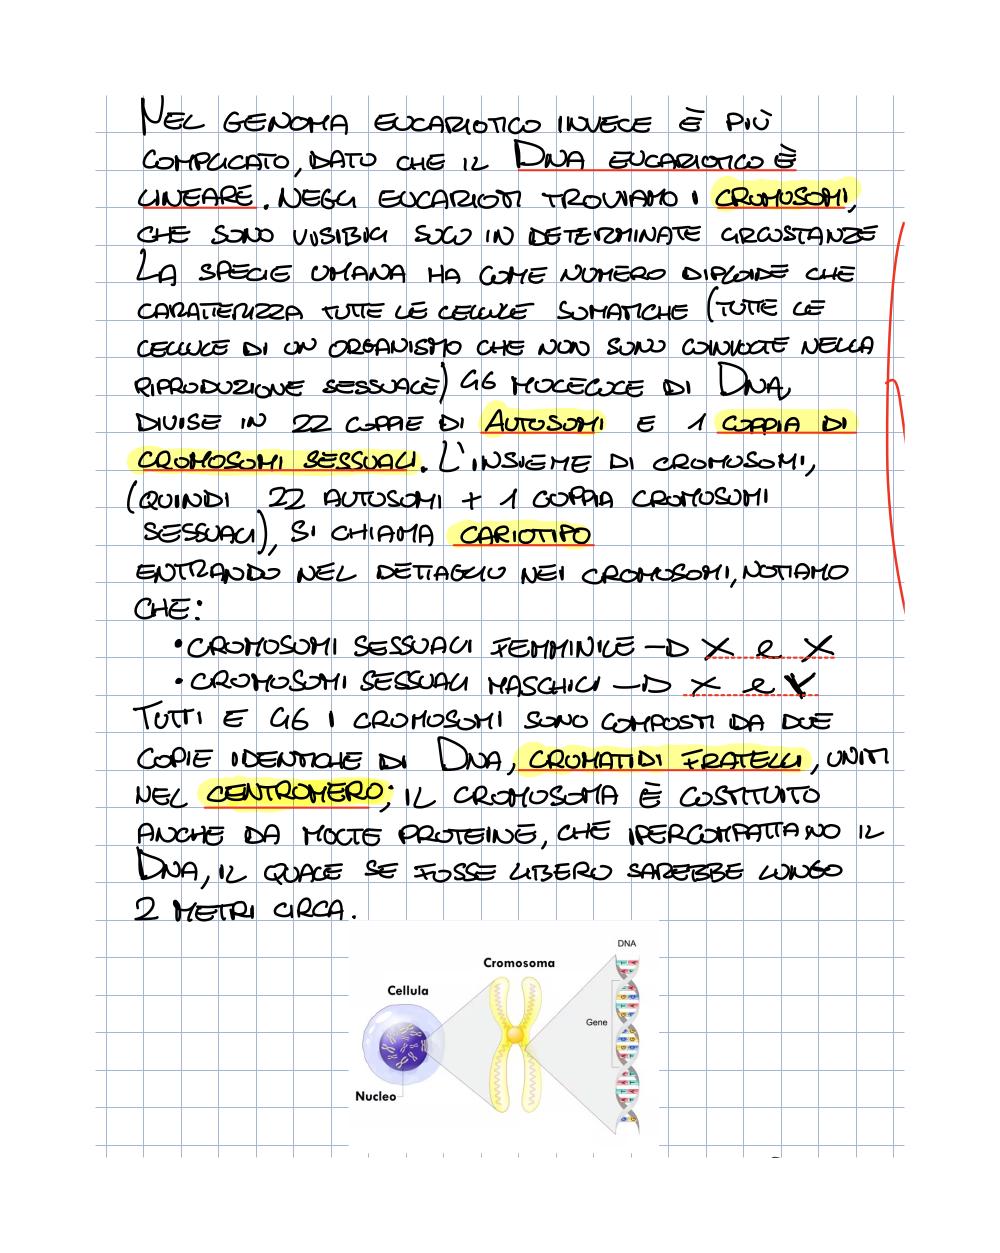 NEL GENOMA EUCARIOTICO INVECE È PIÙ
COMPLICATO, DATO CHE IL DNA EUCARIOTICO È
LINEARE. NEGLI EUCARIOTI TROVIAMO I CROMOSOMI,
CHE SONO VISIBILI SOLO IN DETERMINATE CIRCOSTANZE
LA SPECIE UMANA HA COME NUMERO DIPLOIDE CHE
CARATTERIZZA TUTTE LE CELLULE SOMATICHE (TUTTE LE
CELLULE DI UN ORGANISMO CHE NON SONO COINVOLTE NELLA
RIPRODUZIONE SESSUALE) 46 MOLECOLE DI DNA,
DIVISE IN 22 COPPIE DI AUTOSOMI E 1 COPPIA DI
CROMOSOMI SESSUALI. L'INSIEME DI CROMOSOMI,
(QUINDI 22 AUTOSOMI + 1 COPPIA CROMOSOMI
SESSUALI), SI CHIAMA CARIOTIPO
ENTRANDO NEL DETTAGLIO NEI CROMOSOMI, NOTIAMO
CHE:
• CROMOSOMI SESSUALI FEMMINILE → X e X
• CROMOSOMI SESSUALI MASCHILI → X e Y
TUTTI E 46 I CROMOSOMI SONO COMPOSTI DA DUE
COPIE IDENTICHE DI DNA, CROMATIDI FRATELLI, UNITI
NEL CENTROMERO; IL CROMOSOMA È COSTITUITO
ANCHE DA MOLTE PROTEINE, CHE IPERCOMPATTANO IL
DNA, IL QUALE SE FOSSE LIBERO SAREBBE LUNGO
2 METRI CIRCA.
DNA
Cromosoma
Cellula
Gene
Nucleo